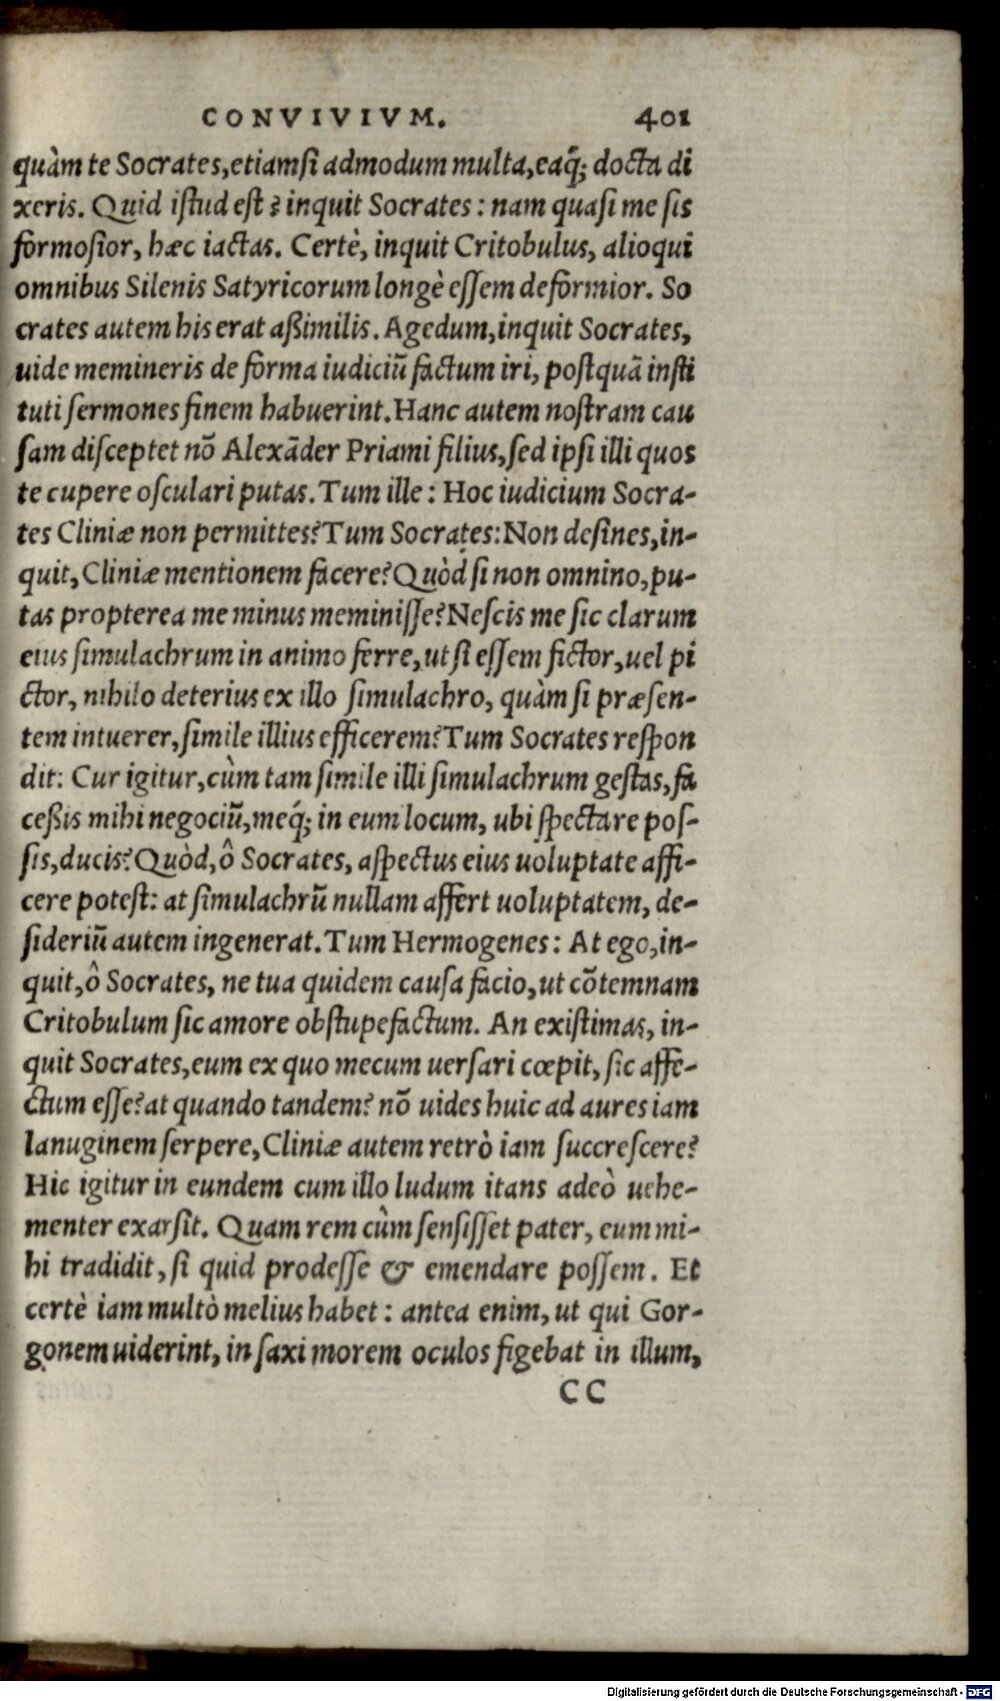 CONVIVIVM. 401
quàm te Socrates, etiamsi admodum multa, eaq́; docta di
xeris. Quid istud est? inquit Socrates: nam quasi me sis
formosior, hæc iactas. Certè, inquit Critobulus, alioqui
omnibus Silenis Satyricorum longè essem deformior. So
crates autem his erat aßimilis. Agedum, inquit Socrates,
uide memineris de forma iudiciũ factum iri, postquã insti
tuti sermones finem habuerint. Hanc autem nostram cau
sam disceptet nõ Alexãder Priami filius, sed ipsi illi quos
te cupere osculari putas. Tum ille: Hoc iudicium Socra-
tes Cliniæ non permittes? Tum Socrates: Non desines, in-
quit, Cliniæ mentionem facere? Quòd si non omnino, pu-
tas propterea me minus meminisse? Nescis me sic clarum
eius simulachrum in animo ferre, ut si essem fictor, uel pi
ctor, nihilo deterius ex illo simulachro, quàm si præsen-
tem intuerer, simile illius efficerem? Tum Socrates respon
dit: Cur igitur, cùm tam simile illi simulachrum gestas, fa
ceßis mihi negociũ, meq́; in eum locum, ubi spectare pos-
sis, ducis? Quòd, ô Socrates, aspectus eius uoluptate affi-
cere potest: at simulachrũ nullam affert uoluptatem, de-
sideriũ autem ingenerat. Tum Hermogenes: At ego, in-
quit, ô Socrates, ne tua quidem causa facio, ut cõtemnam
Critobulum sic amore obstupefactum. An existimas, in-
quit Socrates, eum ex quo mecum uersari cœpit, sic affe-
ctum esse? at quando tandem? nõ uides huic ad aures iam
lanuginem serpere, Cliniæ autem retrò iam succrescere?
Hic igitur in eundem cum illo ludum itans adeò uehe-
menter exarsit. Quam rem cùm sensisset pater, eum mi-
hi tradidit, si quid prodesse & emendare possem. Et
certè iam multò melius habet: antea enim, ut qui Gor-
gonem uiderint, in saxi morem oculos figebat in illum,
CC
Digitalisierung gefördert durch die Deutsche Forschungsgemeinschaft - DFG